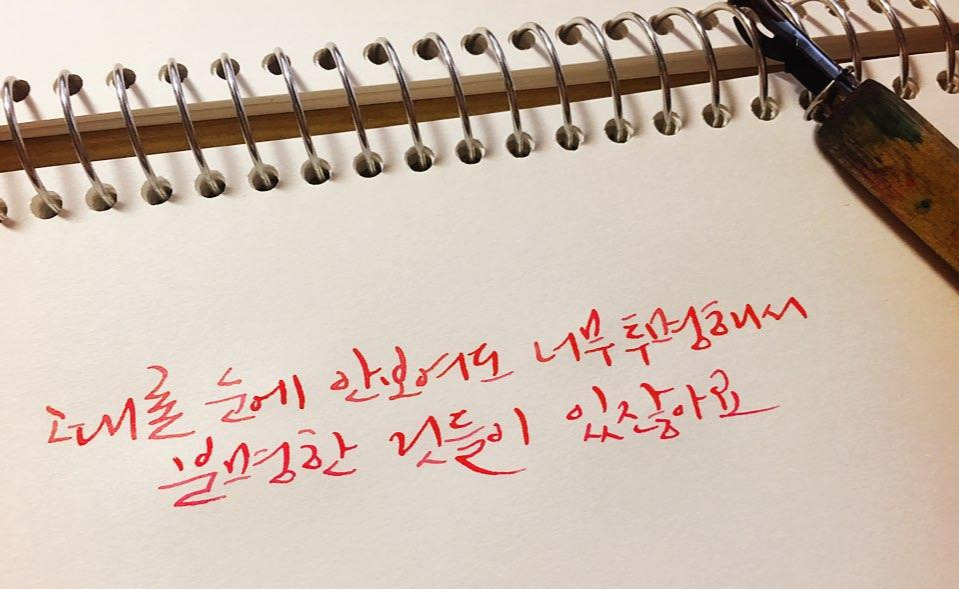 그대로 눈에 안보여도 너무 투명해서
분명한 것들이 있잖아요